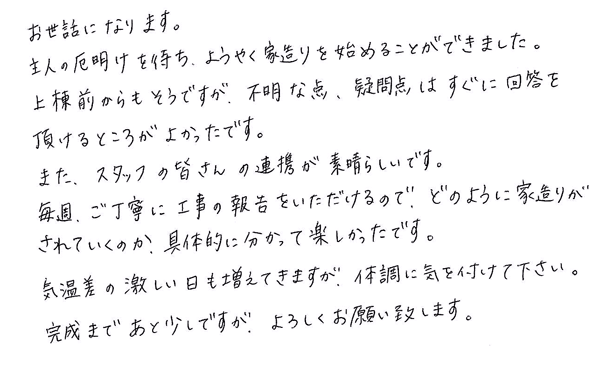 お世話になります。
主人の厄明けを待ち、ようやく家造りを始めることができました。
上棟前からもそうですが、不明な点、疑問点はすぐに回答を
頂けるところがよかったです。
また、スタッフの皆さんの連携が素晴らしいです。
毎週、ご丁寧に工事の報告をいただけるので、どのように家造りが
されていくのか、具体的に分かって楽しかったです。
気温差の激しい日も増えてきますが、体調に気を付けて下さい。
完成まであと少しですが、よろしくお願い致します。